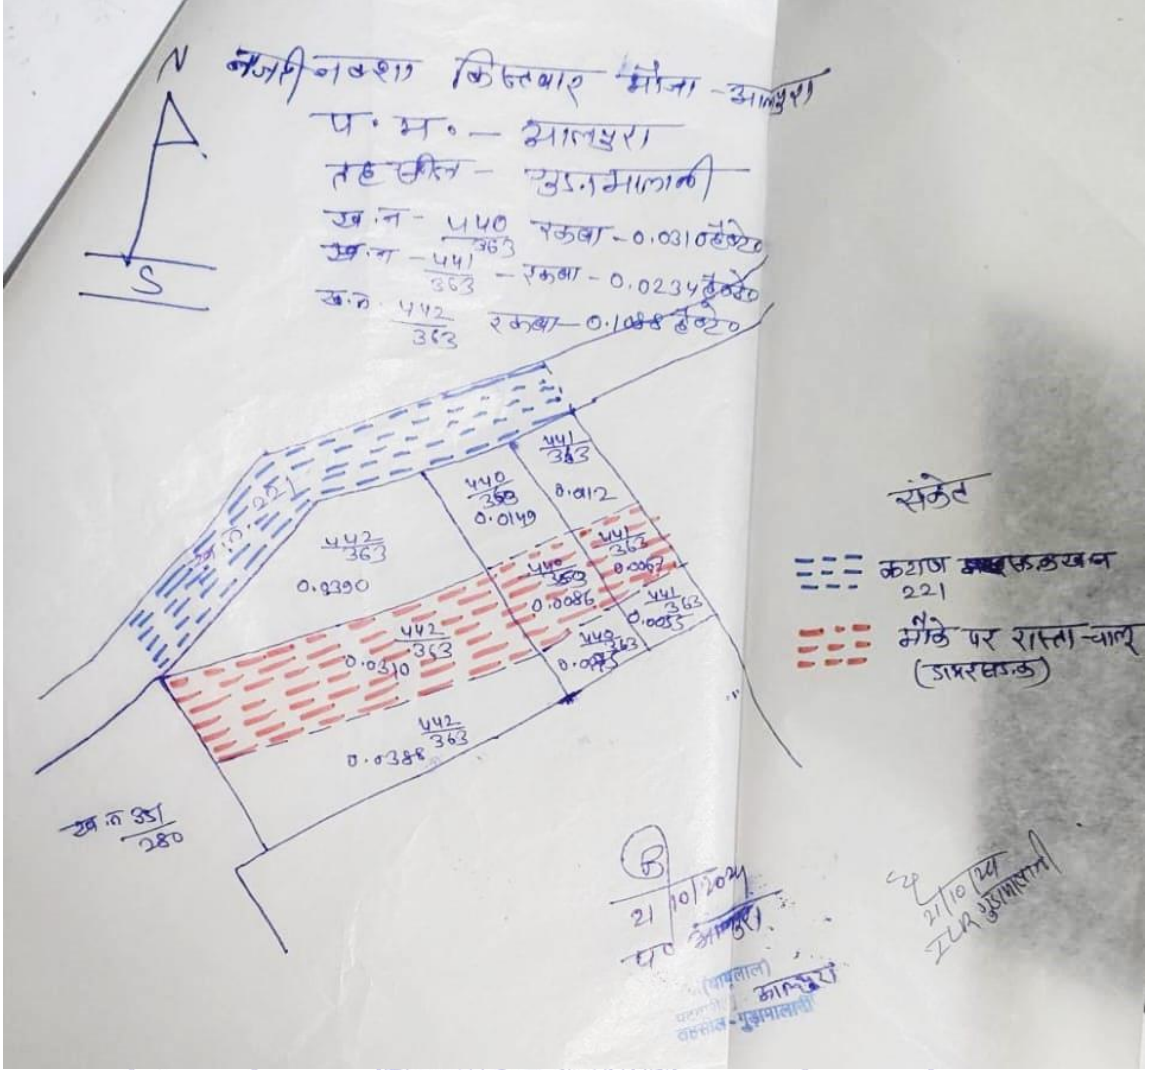 N
नजरी नक्शा किस्तवार मौजा - आलपुरा
प. म. - आलपुरा
तहसील - गुडामालानी
ख.न - 440/363 रकबा - 0.0310 हैक्टे०
ख.न - 441/363 - रकबा - 0.0234 हैक्टे०
ख.न. 442/363 रकबा - 0.1088 हैक्टे०
S
441/363
0.012
440/363
0.0149
442/363
0.0390
ख.न. 221
441/363
0.0062
440/363
0.0086
441/363
0.0053
440/363
442/363
0.0310
442/363
0.0388
ख.न 351/280
संकेत
कटाण
221
मौके पर रास्ता चालू
(डामर सडक)
21/10/2024
प० आलपुरा
तहसील - गुड़ामालानी
21/10/24
ILR गुडामालानी